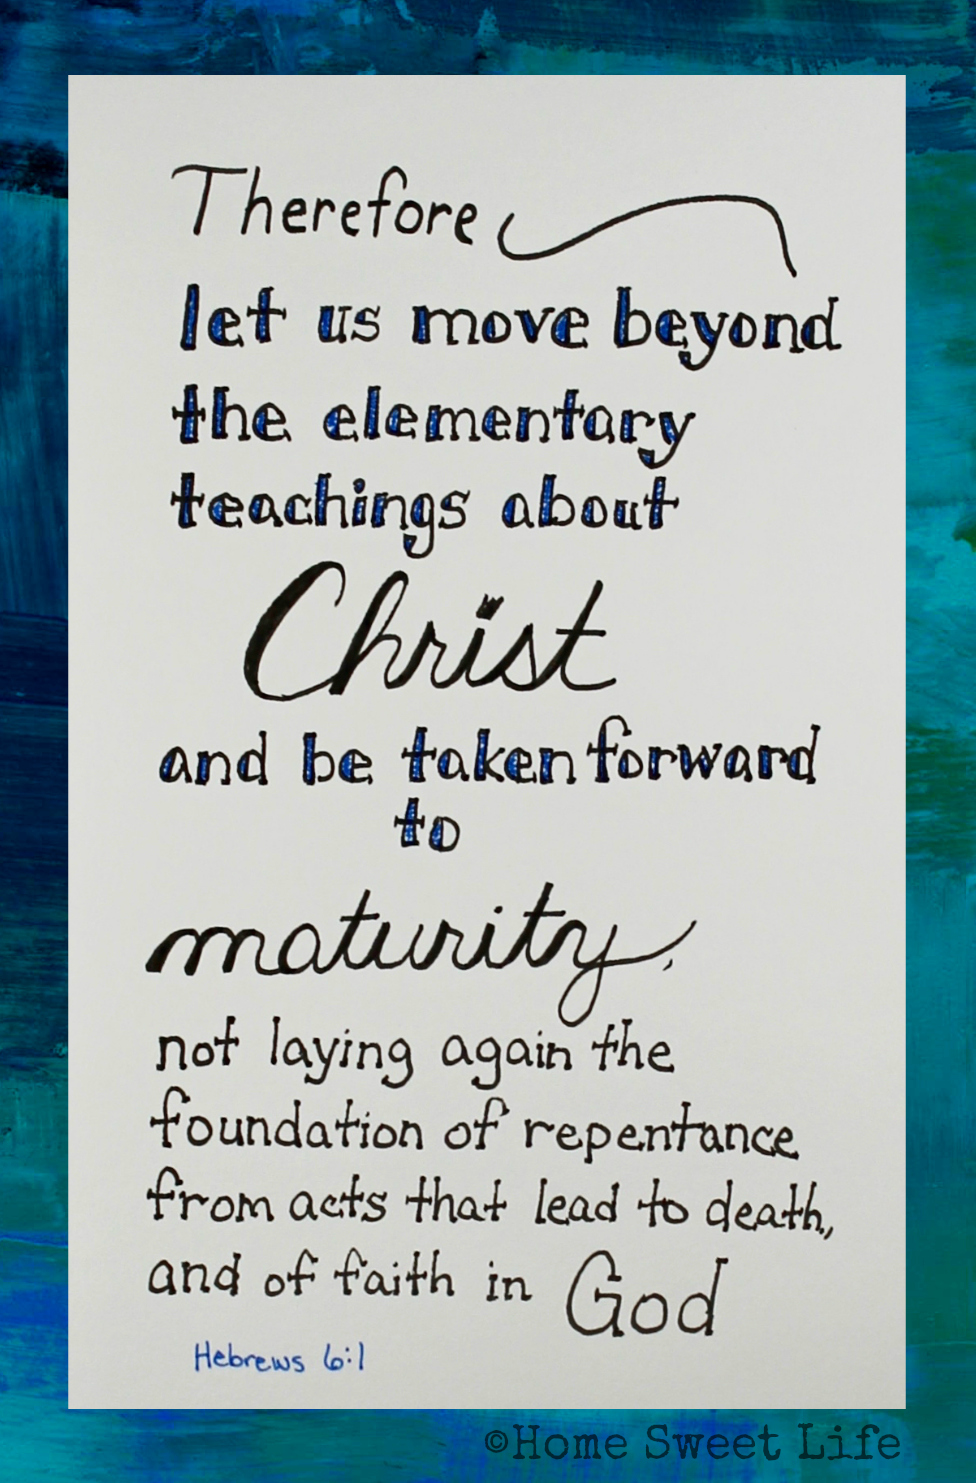 Therefore
let us move beyond
the elementary
teachings about
Christ
and be taken forward
to
maturity,
not laying again the
foundation of repentance
from acts that lead to death,
and of faith in God
Hebrews 6:1
©Home Sweet Life